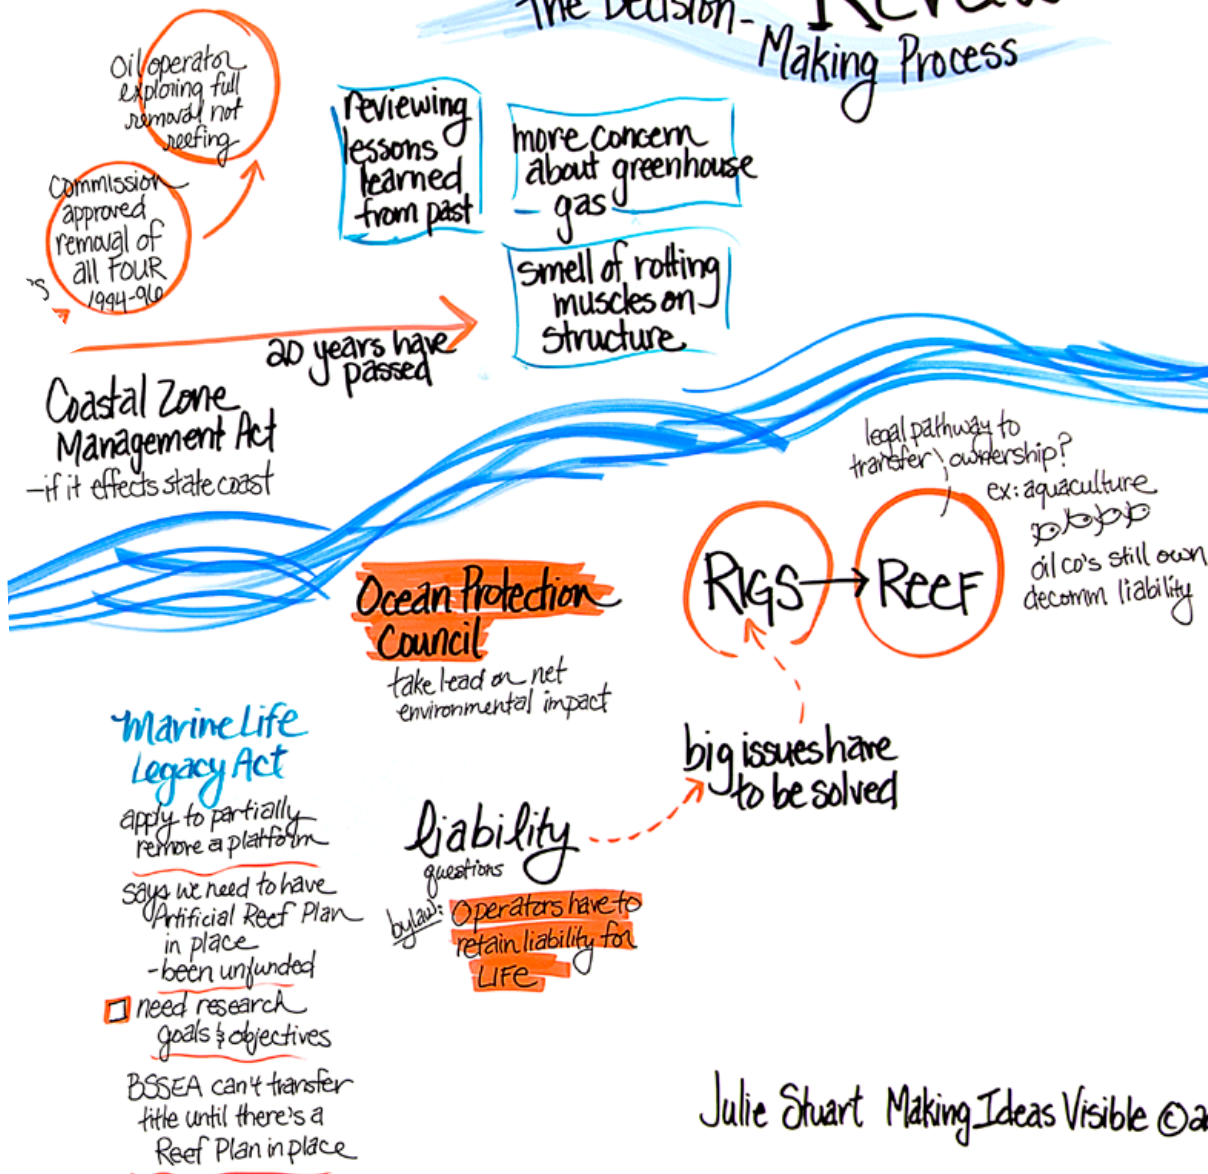 The Decision-
Making Process
Oil operator
exploring full
removal not
reefing
Commission
approved
removal of
all FOUR
1994-96
reviewing
lessons
learned
from past
more concern
about greenhouse
gas
smell of rotting
muscles on
structure
20 years have
passed
Coastal Zone
Management Act
-if it effects state coast
legal pathway to
transfer ownership?
ex: aquaculture
oil co's still own
decomm liability
RIGS → REEF
Ocean Protection
Council
take lead on net
environmental impact
big issues have
to be solved
Marine Life
Legacy Act
apply to partially
remore a platform
says we need to have
Artificial Reef Plan
in place
-been unfunded
need research
goals & objectives
BSSEA can't transfer
title until there's a
Reef Plan in place
liability
questions
bylaw: Operators have to
retain liability for
LIFE
Julie Stuart Making Ideas Visible ©